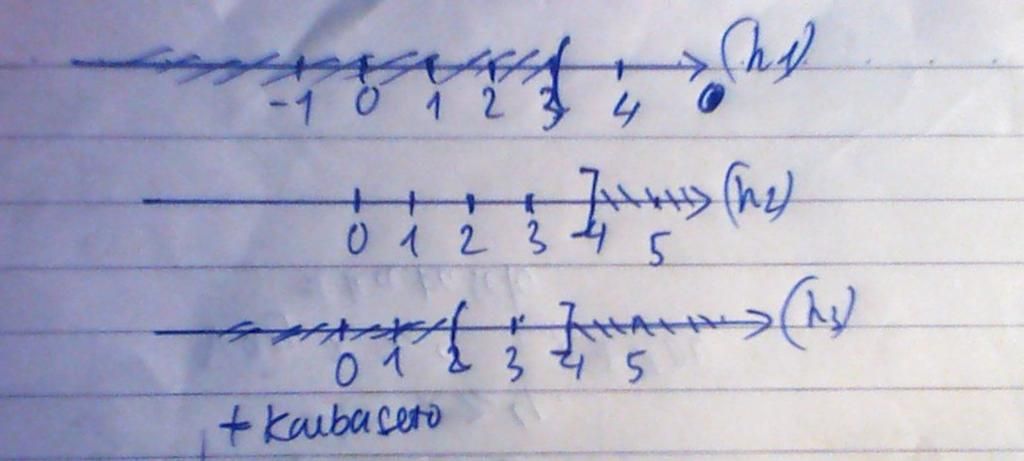 (h1)
-1 0 1 2 3 4
(h2)
0 1 2 3 4 5
(h3)
0 1 2 3 4 5